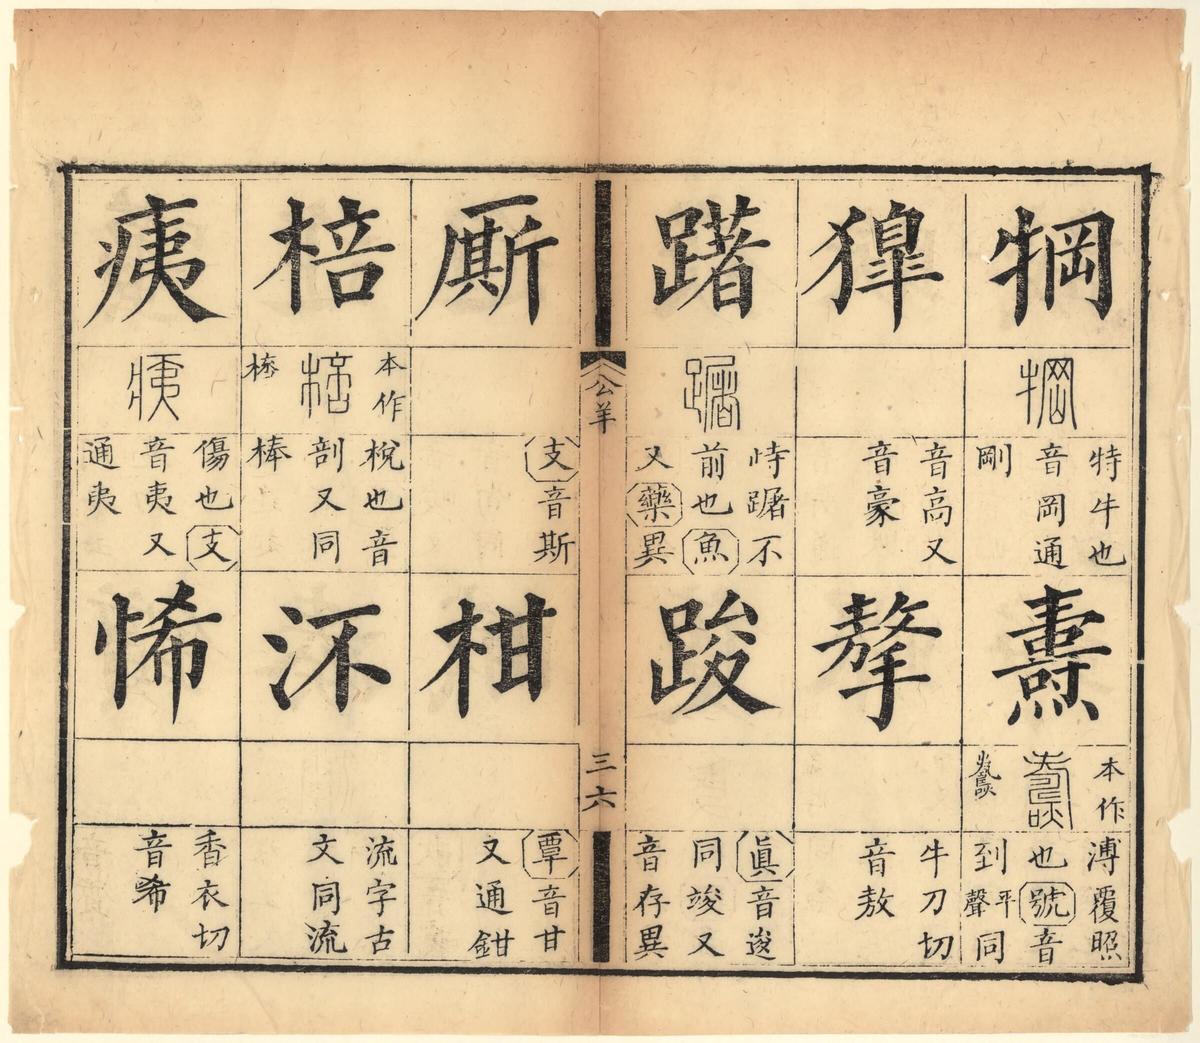 犅
特牛也
音岡通
剛
燾
本作
溥覆照
也號音
到平聲同
獋
音高又
音豪
摮
牛刀切
音敖
躇
峙䠧不
前也魚
又藥異
踆
眞音逡
同竣又
音存異
公羊
三六
厮
支音斯
柑
覃音甘
又通鉗
棓
本作
梲也音
剖又同
棒
流字古
文同流
痍
傷也支
音夷又
通夷
悕
香衣切
音希